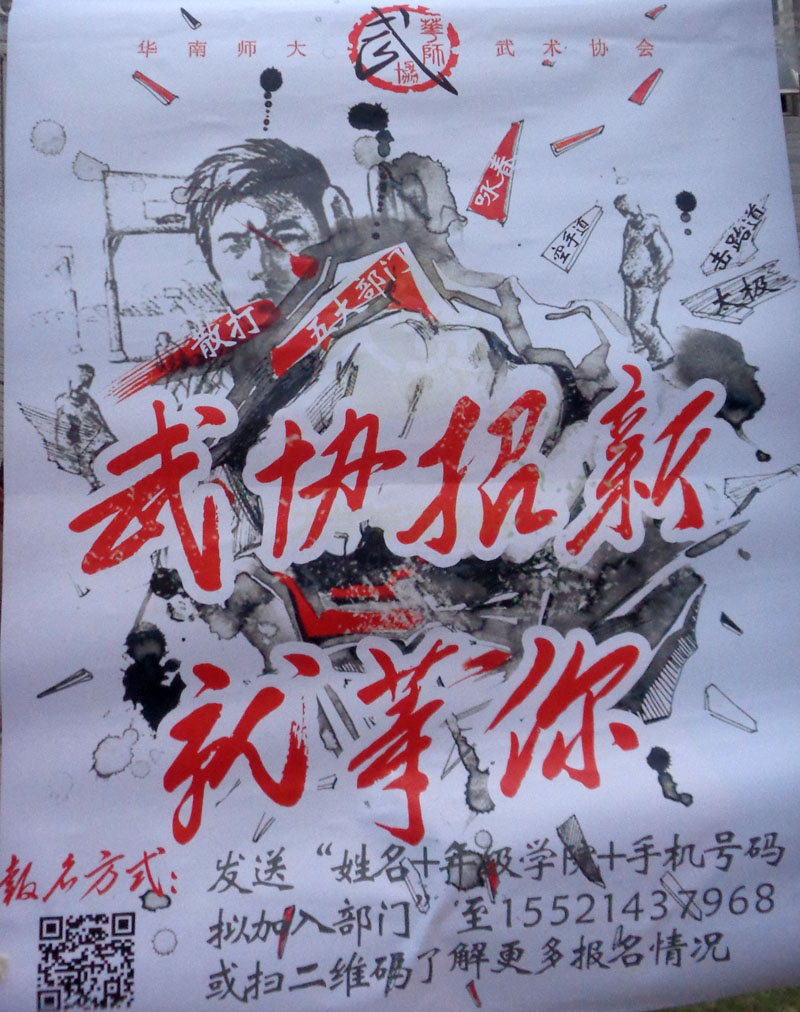 华南师大
武术协会
武
華師
協
咏春
空手道
击跆道
太极
五大部门
散打
武协招新
就等你
報名方式：
发送“姓名+年级学院+手机号码
拟加入部门”至15521437968
或扫二维码了解更多报名情况